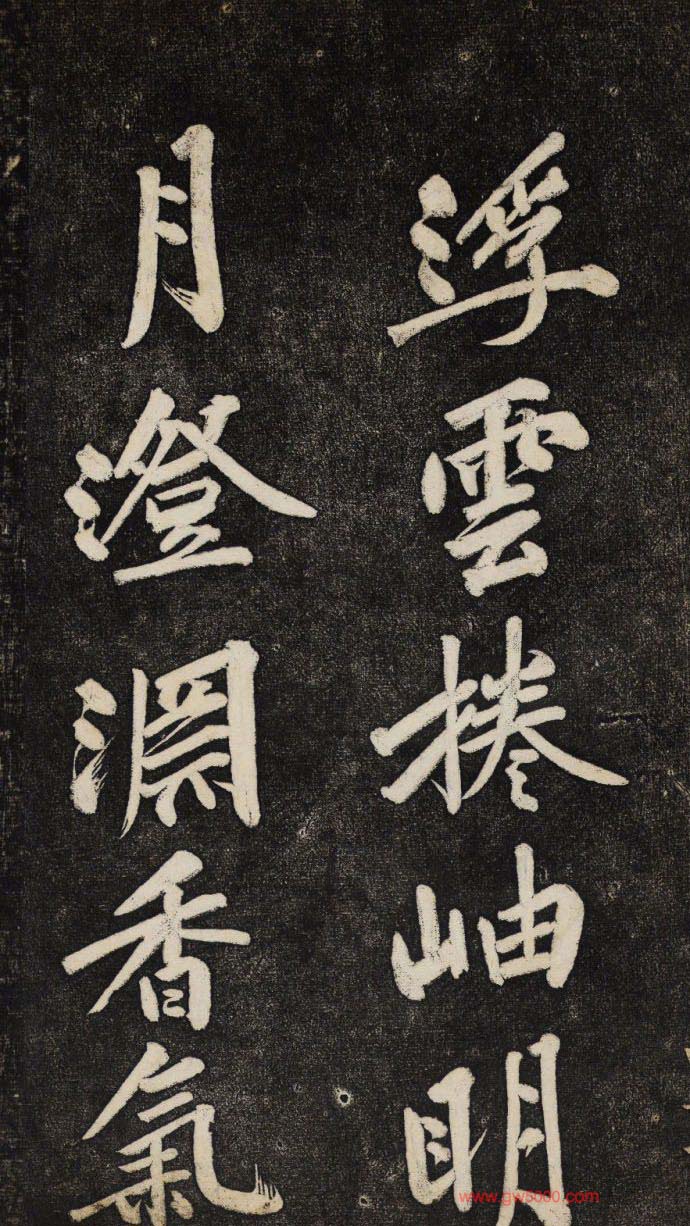 浮雲捲岫明
月澄淵香氣
www.gw5000.com